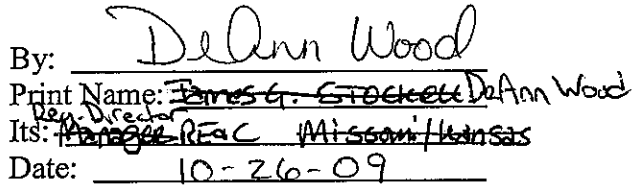 By: DeAnn Wood
Print Name: James G. Stockell DeAnn Wood
Reg. Director
Its: Manager RE&C Missouri/Kansas
Date: 10-26-09